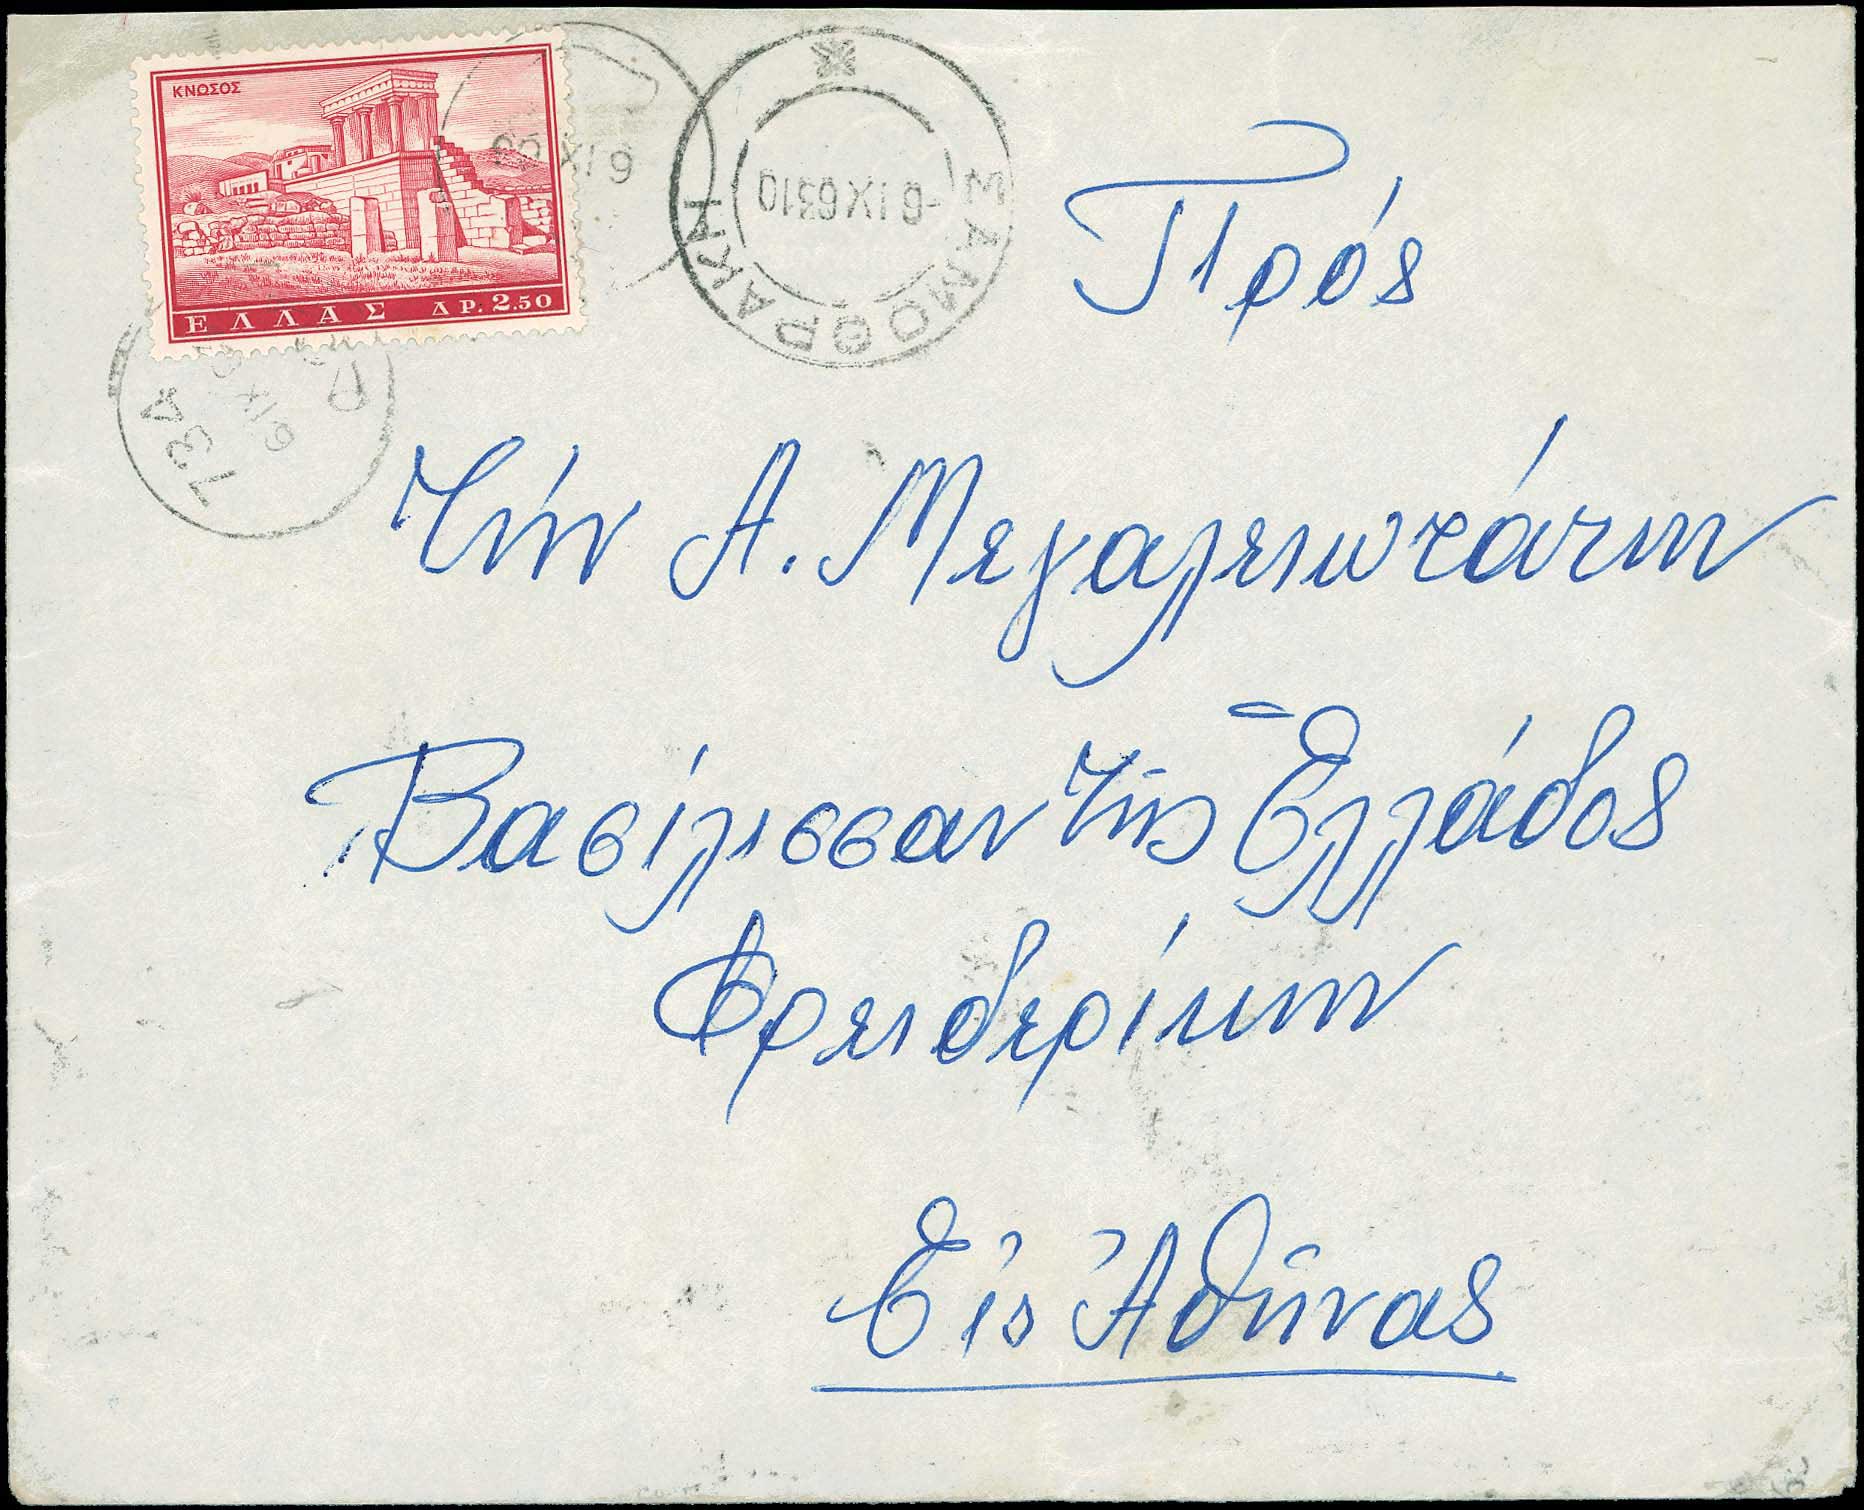 ΚΝΩΣΟΣ
ΕΛΛΑΣ ΔΡ. 2.50
ΣΑΜΟΘΡΑΚΗ
-6 IX 63 10
73Δ
6 IX
Πρός
τήν Α. Μεγαλειοτάτην
Βασίλισσαν τῆς Ἑλλάδος
Φρειδερίκην
Εἰς Ἀθήνας